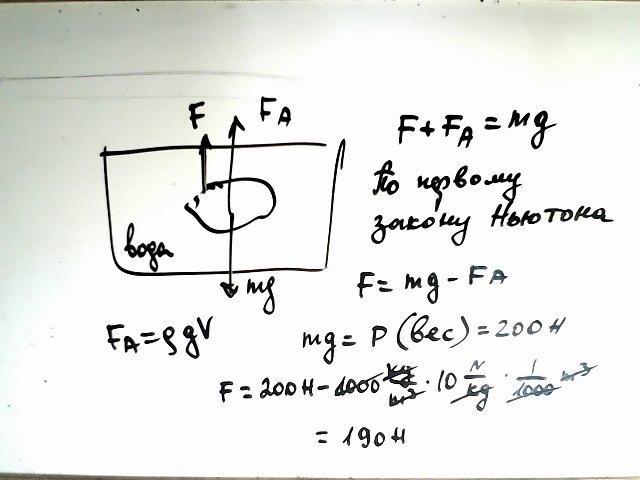 F
F_A
F + F_A = mg
По первому
закону Ньютона
вода
mg
F = mg - F_A
F_A = ρgV
mg = P (вес) = 200 Н
F = 200 Н - 1000 kg/m³ · 10 N/kg · 1/1000 m³
= 190 Н